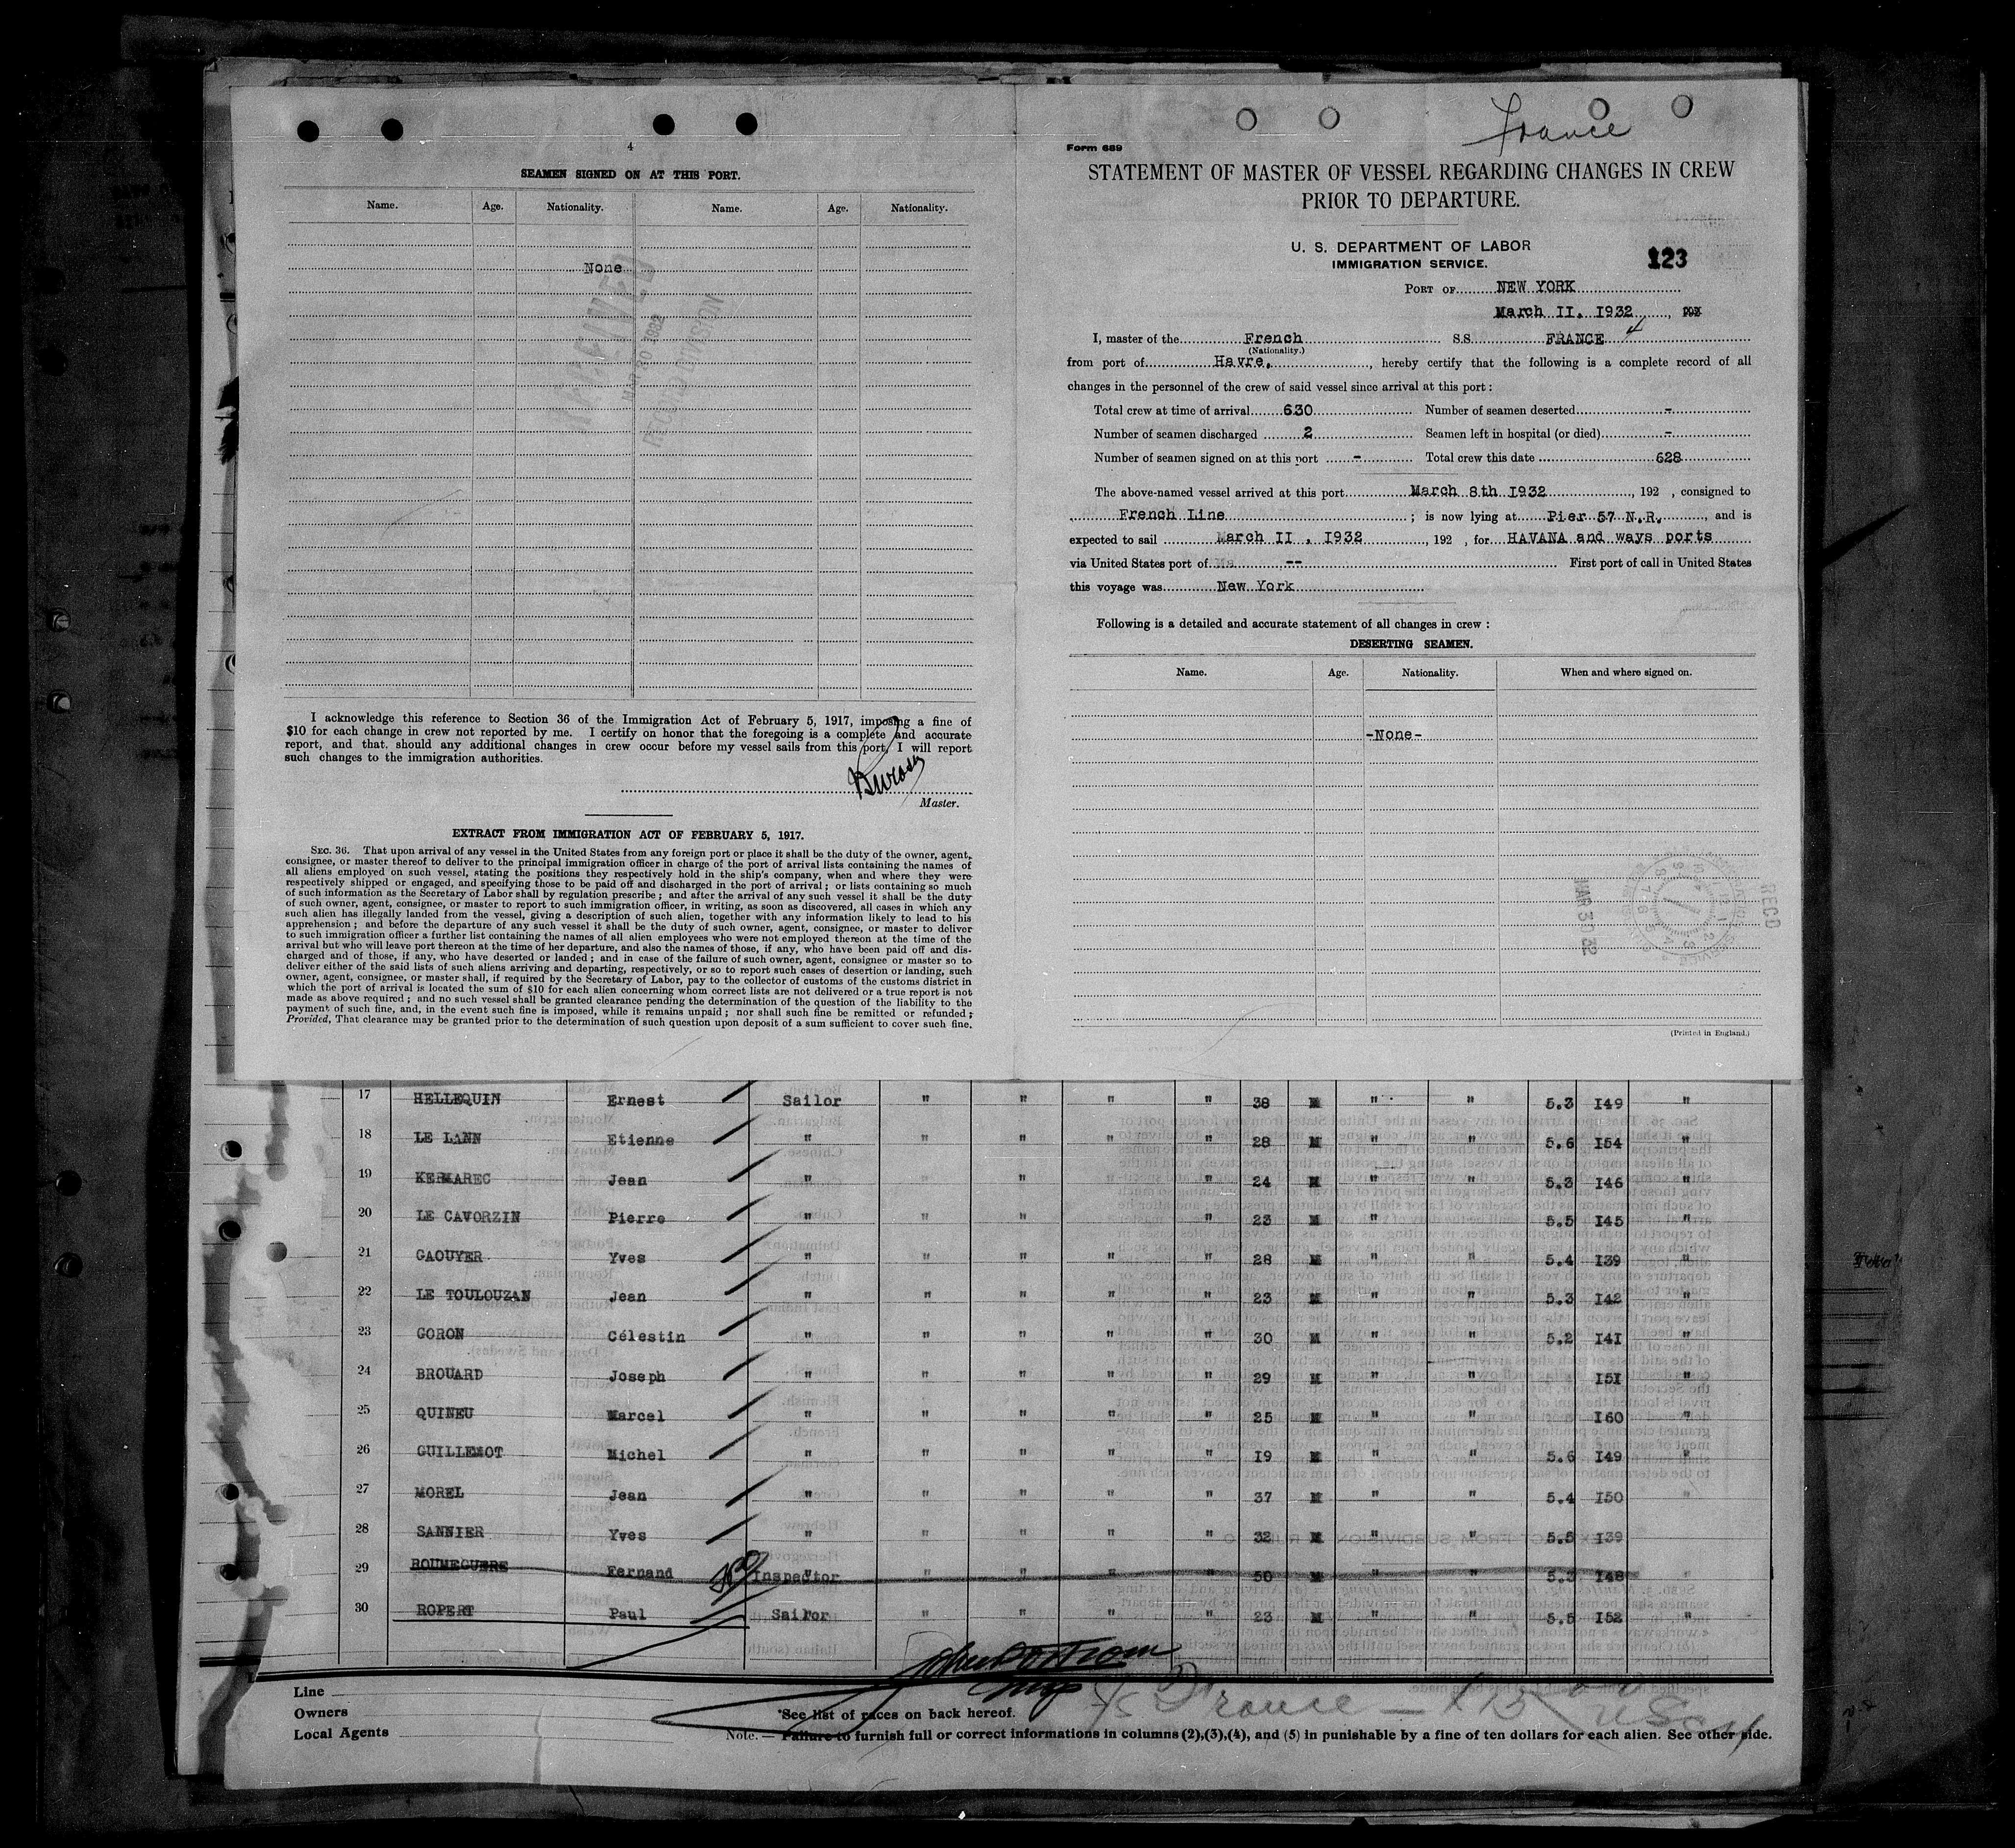 4
SEAMEN SIGNED ON AT THIS PORT.
Name. Age. Nationality. Name. Age. Nationality.
None
MAR 30 1932
RECORD DIVISION
I acknowledge this reference to Section 36 of the Immigration Act of February 5, 1917, imposing a fine of
$10 for each change in crew not reported by me. I certify on honor that the foregoing is a complete and accurate
report, and that should any additional changes in crew occur before my vessel sails from this port, I will report
such changes to the immigration authorities.
Master.
EXTRACT FROM IMMIGRATION ACT OF FEBRUARY 5, 1917.
SEC. 36. That upon arrival of any vessel in the United States from any foreign port or place it shall be the duty of the owner, agent,
consignee, or master thereof to deliver to the principal immigration officer in charge of the port of arrival lists containing the names of
all aliens employed on such vessel, stating the positions they respectively hold in the ship's company, when and where they were
respectively shipped or engaged, and specifying those to be paid off and discharged in the port of arrival; or lists containing so much
of such information as the Secretary of Labor shall by regulation prescribe; and after the arrival of any such vessel it shall be the duty
of such owner, agent, consignee, or master to report to such immigration officer, in writing, as soon as discovered, all cases in which any
such alien has illegally landed from the vessel, giving a description of such alien, together with any information likely to lead to his
apprehension; and before the departure of any such vessel it shall be the duty of such owner, agent, consignee, or master to deliver
to such immigration officer a further list containing the names of all alien employees who were not employed thereon at the time of the
arrival but who will leave port thereon at the time of her departure, and also the names of those, if any, who have been paid off and dis-
charged and of those, if any, who have deserted or landed; and in case of the failure of such owner, agent, consignee or master so to
deliver either of the said lists of such aliens arriving and departing, respectively, or so to report such cases of desertion or landing, such
owner, agent, consignee, or master shall, if required by the Secretary of Labor, pay to the collector of customs of the customs district in
which the port of arrival is located the sum of $10 for each alien concerning whom correct lists are not delivered or a true report is not
made as above required; and no such vessel shall be granted clearance pending the determination of the question of the liability to the
payment of such fine, and, in the event such fine is imposed, while it remains unpaid; nor shall such fine be remitted or refunded;
Provided, That clearance may be granted prior to the determination of such question upon deposit of a sum sufficient to cover such fine.
France
Form 689
STATEMENT OF MASTER OF VESSEL REGARDING CHANGES IN CREW
PRIOR TO DEPARTURE.
U. S. DEPARTMENT OF LABOR
IMMIGRATION SERVICE.
123
PORT OF NEW YORK
March II, 1932
I, master of the French S.S. FRANCE
(Nationality.)
from port of Havre, , hereby certify that the following is a complete record of all
changes in the personnel of the crew of said vessel since arrival at this port:
Total crew at time of arrival 630 Number of seamen deserted -
Number of seamen discharged 2 Seamen left in hospital (or died) -
Number of seamen signed on at this port - Total crew this date 628
The above-named vessel arrived at this port March 8th 1932 , 192 , consigned to
French Line ; is now lying at Pier 57 N.R. , and is
expected to sail March II , 1932 , 192 , for HAVANA and ways ports
via United States port of -- First port of call in United States
this voyage was New York
Following is a detailed and accurate statement of all changes in crew:
DESERTING SEAMEN.
Name. Age. Nationality. When and where signed on.
-None-
RECD
MAR 30 32
(Printed in England.)
17 HELLEQUIN Ernest Sailor " " " " 38 M " " 5.3 I49 "
18 LE LANN Etienne " " " " " 28 M " " 5.6 I54 "
19 KERMAREC Jean " " " " " 24 M " " 5.3 I46 "
20 LE CAVORZIN Pierre " " " " 23 M " " 5.5 I45 "
21 GAOUYER Yves " " " " " 28 M " " 5.4 I39 "
22 LE TOULOUZAN Jean " " " " " 23 M " " 5.3 I42 "
23 GORON Célestin " " " " " 30 M " " 5.2 I41 "
24 BROUARD Joseph " " " " " 29 M " " I51 "
25 QUINEU Marcel " " " " " 25 M " " I60 "
26 GUILLEMOT Michel " " " " " 19 M " " 5.6 I49 "
27 MOREL Jean " " " " " 37 M " " 5.4 I50 "
28 SANNIER Yves " " " " " 32 M " " 5.5 I39
29 ROUMEGUERE Fernand Inspector " " " " 50 M " " 5.3 I48 "
30 ROPERT Paul Sailor " " " " 23 M " " 5.5 I52 "
Line
Owners
Local Agents
*See list of races on back hereof.
S/S France
Note. — Failure to furnish full or correct informations in columns (2),(3),(4), and (5) in punishable by a fine of ten dollars for each alien. See other side.